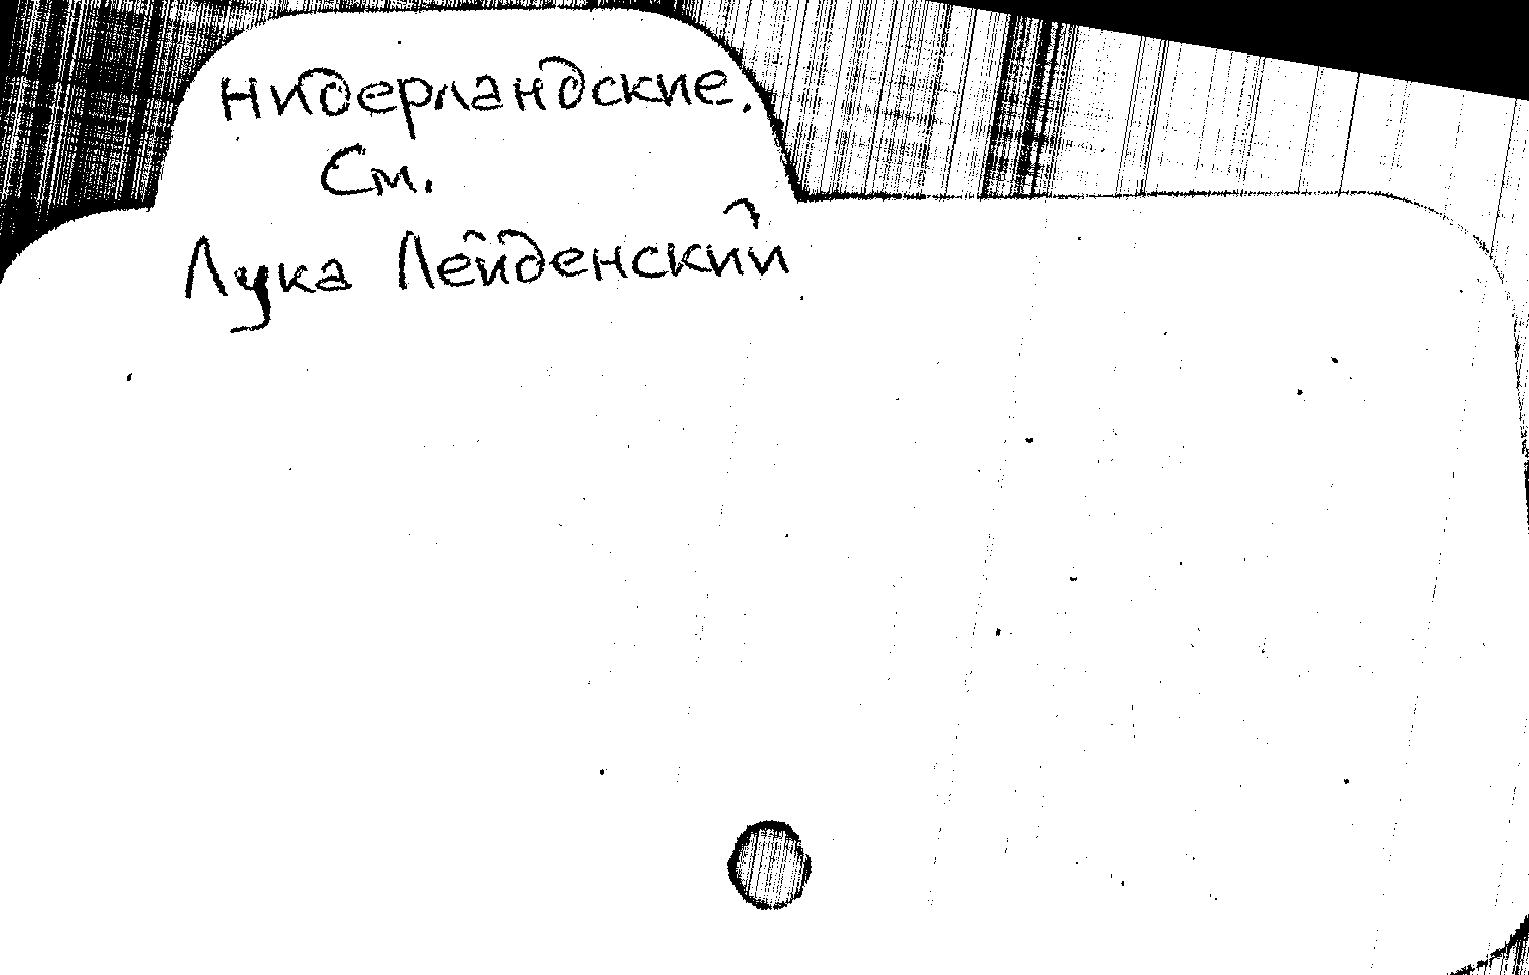 нидерландские.
См.
Лука Лейденский